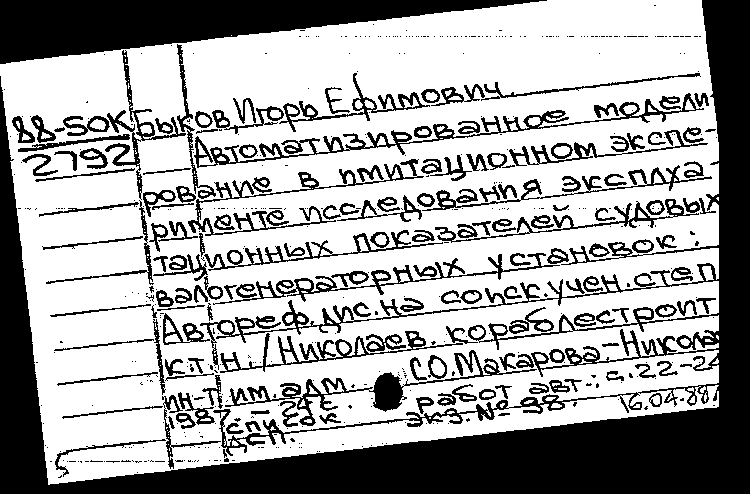 88-50К Быков, Игорь Ефимович.
2792 Автоматизированное модели-
рование в имитационном экспе-
рименте исследования эксплуа-
тационных показателей судовых
валогенераторных установок:
Автореф. дис. на соиск. учен. степ.
к.т.н. / Николаев. кораблестроит.
ин-т им. адм. С.О. Макарова.- Никола
1987 - 24 с. работ авт.: с. 22-24
список экз. № 98. 16.04.88
ДСП.